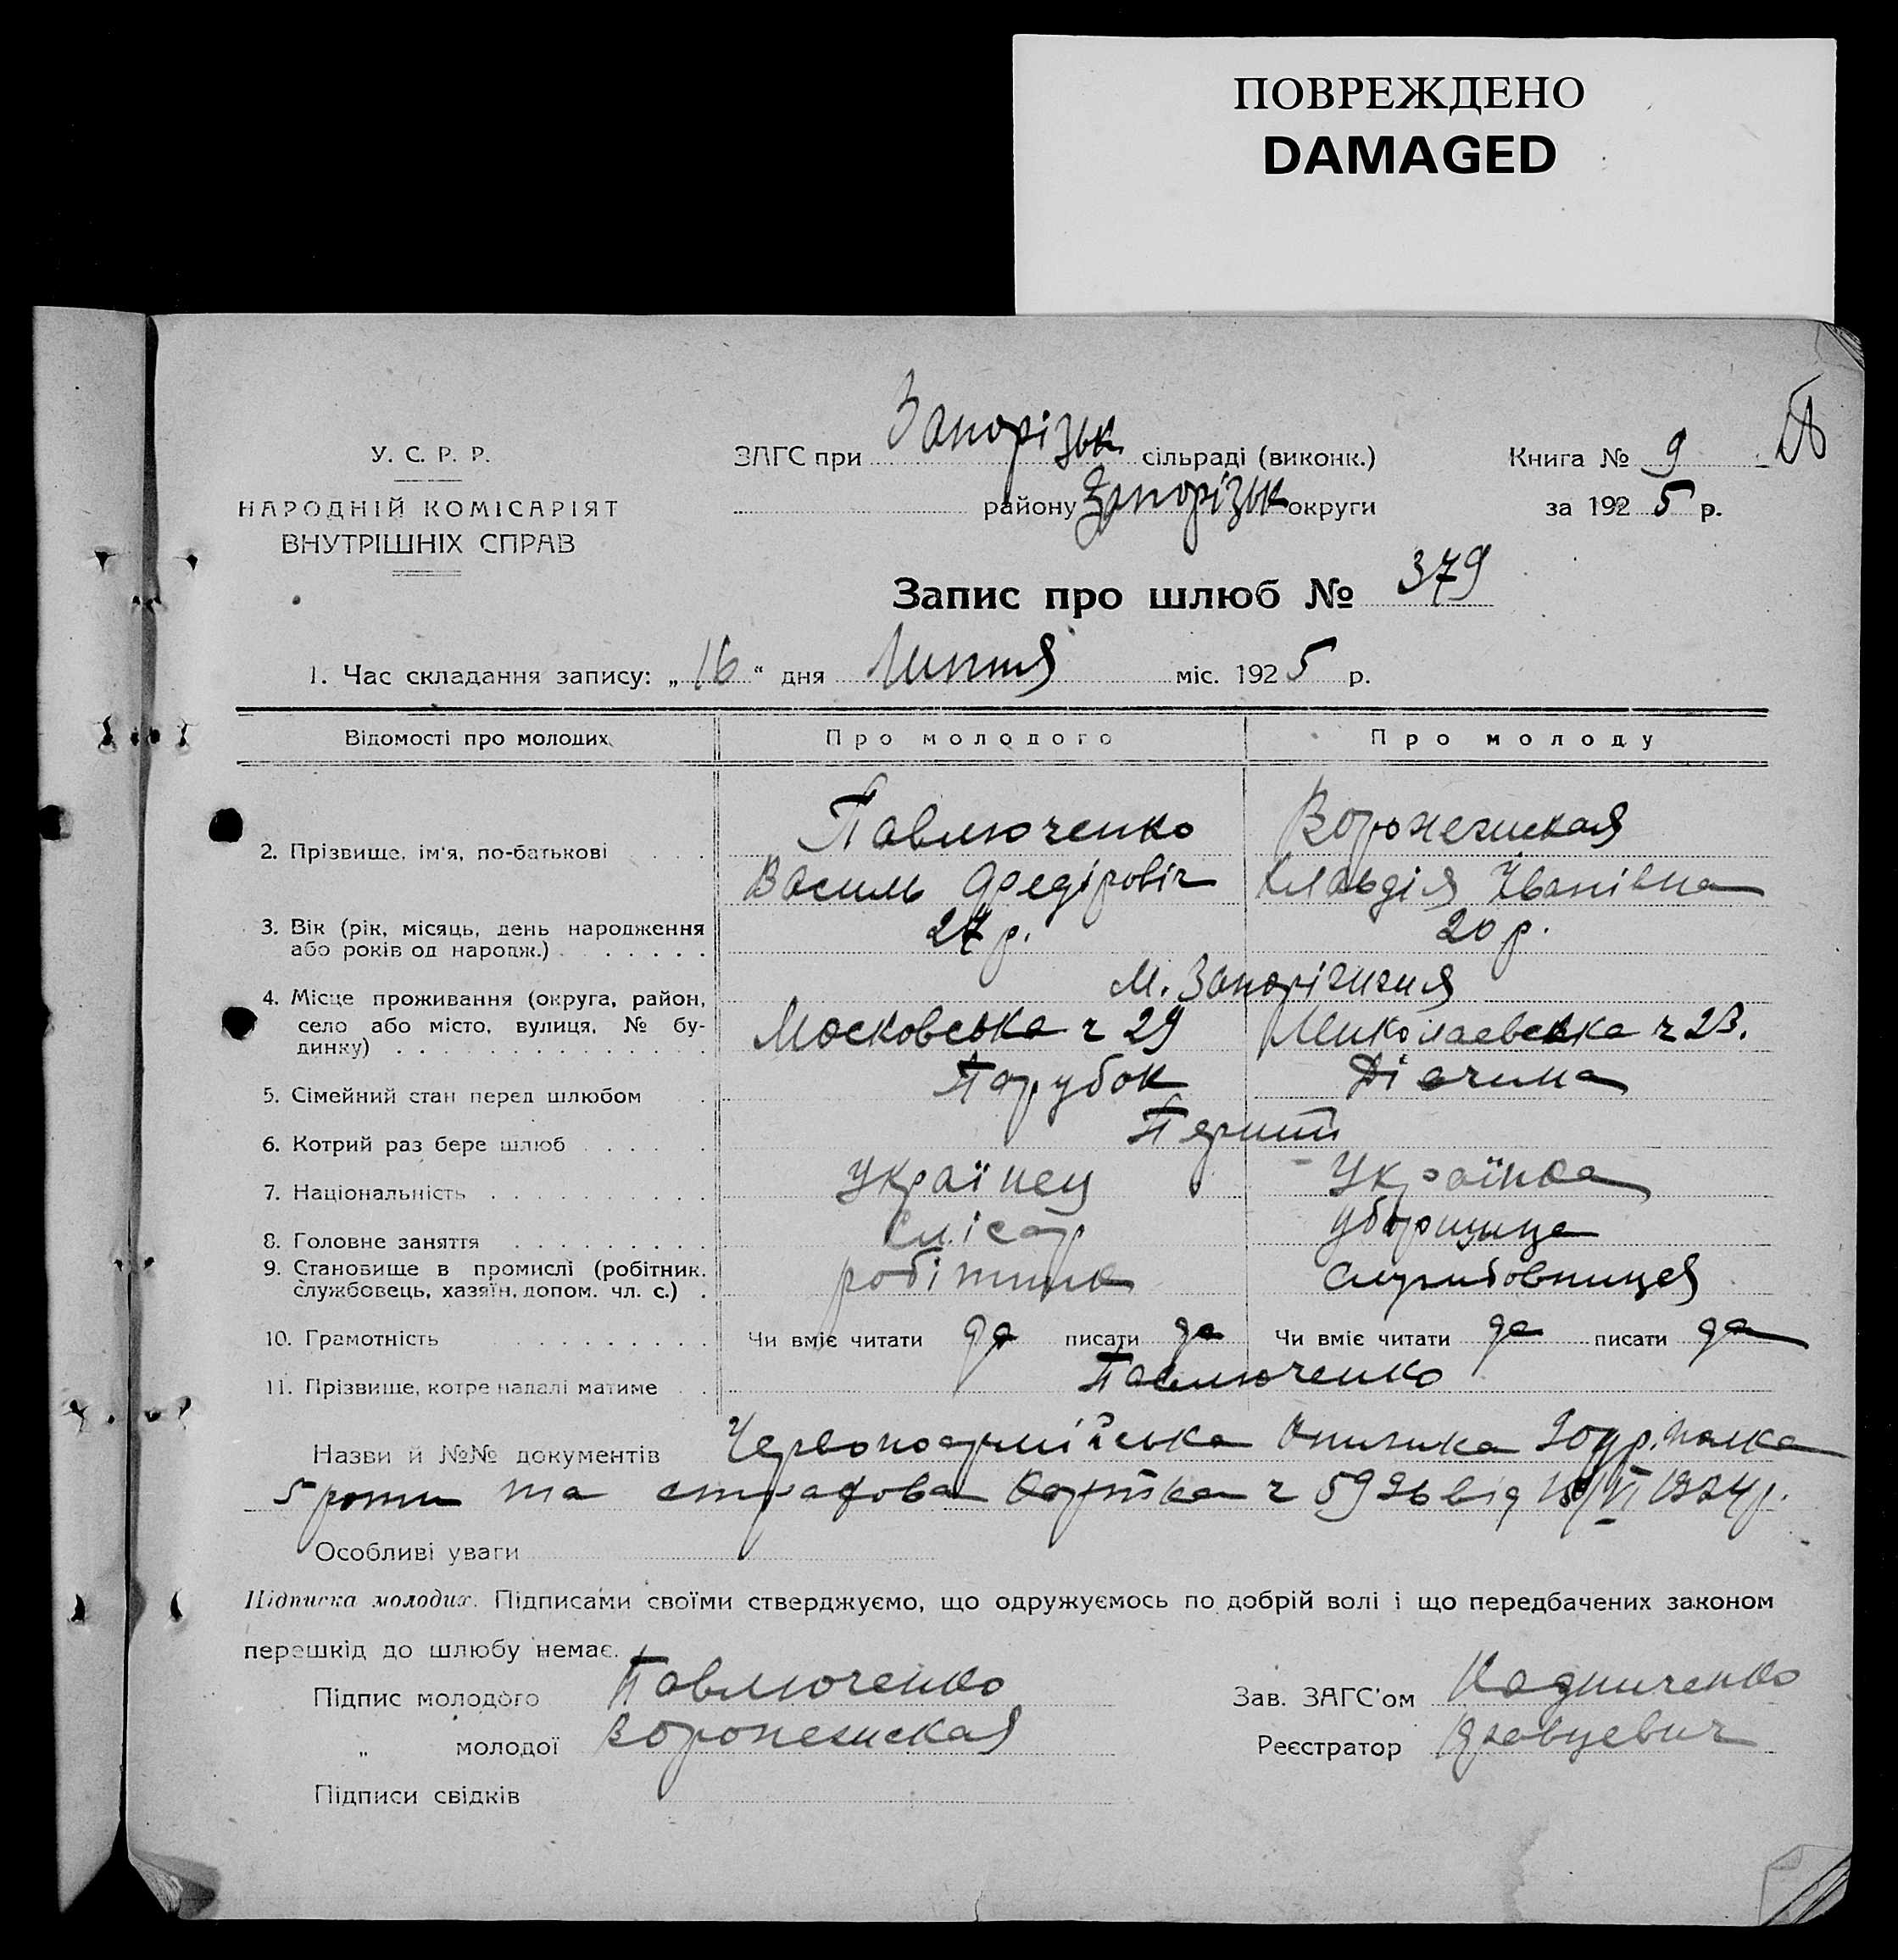 ПОВРЕЖДЕНО
DAMAGED
У. С. Р. Р.
НАРОДНІЙ КОМІСАРІЯТ
ВНУТРІШНІХ СПРАВ
ЗАГС при Запорізьк сільраді (виконк.)
району Запорізьк округи
Книга № 9
за 1925 р.
Запис про шлюб № 379
1. Час складання запису: „16“ дня Липня міс. 1925 р.
Відомості про молодих Про молодого Про молоду
2. Прізвище, ім'я, по-батькові Павлюченко Воронежская
Василь Федіровіч Клавдія Іванівна
3. Вік (рік, місяць, день народження
або років од народж.) 27 р. 20 р.
4. Місце проживання (округа, район, м. Запоріжжя
село або місто, вулиця, № бу-
динку) Московська ч 29 Миколаевська ч 23.
5. Сімейний стан перед шлюбом Парубок Дівчина
6. Котрий раз бере шлюб Перший
7. Національність Українец Українка
8. Головне заняття Слісар уборщица
9. Становище в промислі (робітник,
службовець, хазяїн, допом. чл. с.) робітник службовниця
10. Грамотність Чи вміє читати да писати да Чи вміє читати да писати да
11. Прізвище, котре надалі матиме Павлюченко
Назви й №№ документів Червоноармійська книжка полка
5 роти та страхова картка ч 5926 від /VI 1924 р.
Особливі уваги
Підписка молодих. Підписами своїми стверджуємо, що одружуємось по добрій волі і що передбачених законом
перешкід до шлюбу немає.
Підпис молодого Павлюченко
„ молодої Воронежская
Підписи свідків
Зав. ЗАГС'ом
Реєстратор